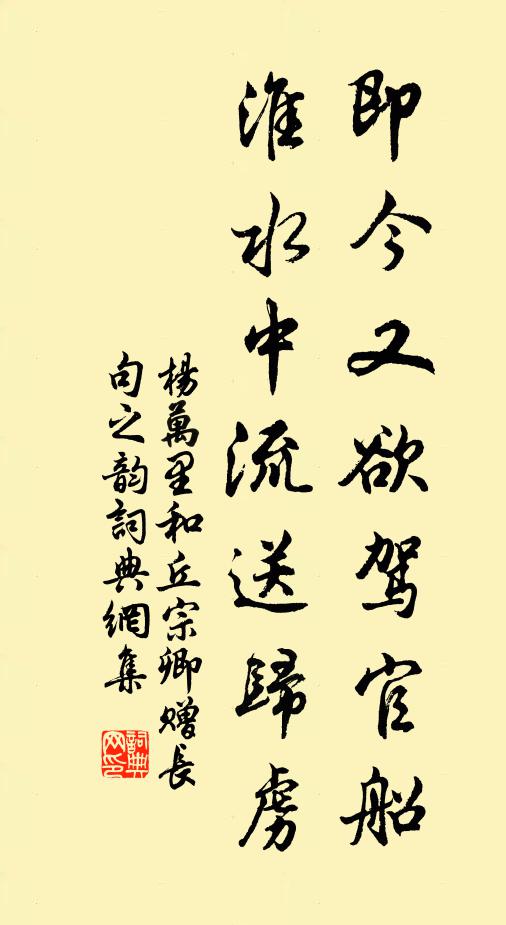 即今又欲駕官船
淮水中流送歸虜
楊萬里和丘宗卿贈長
句之韵詞典網集
詞典
网印